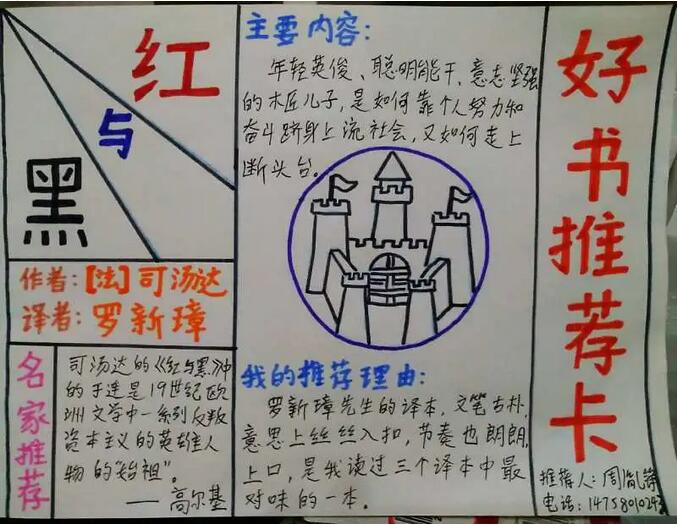 红
与
黑
作者：[法]司汤达
译者：罗新璋
名家推荐
司汤达的《红与黑》中
的于连是19世纪欧
洲文学中一系列反叛
资本主义的英雄人
物的“始祖”。
——高尔基
主要内容：
年轻英俊、聪明能干、意志坚强
的木匠儿子，是如何靠个人努力和
奋斗跻身上流社会，又如何走上
断头台。
我的推荐理由：
罗新璋先生的译本，文笔古朴，
意思上丝丝入扣，节奏也朗朗
上口，是我读过三个译本中最
对味的一本。
好书推荐卡
推荐人：周胤
电话：